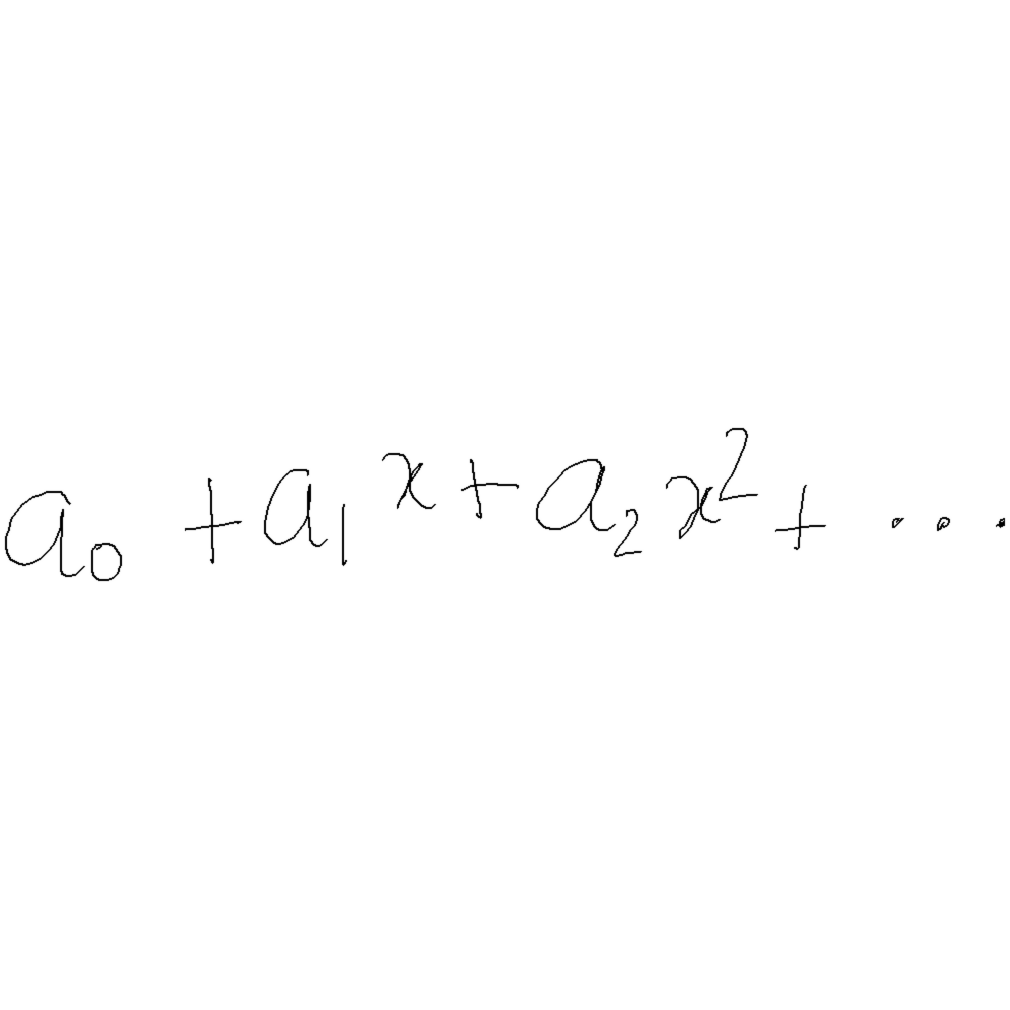 a₀ + a₁x + a₂x² + ...